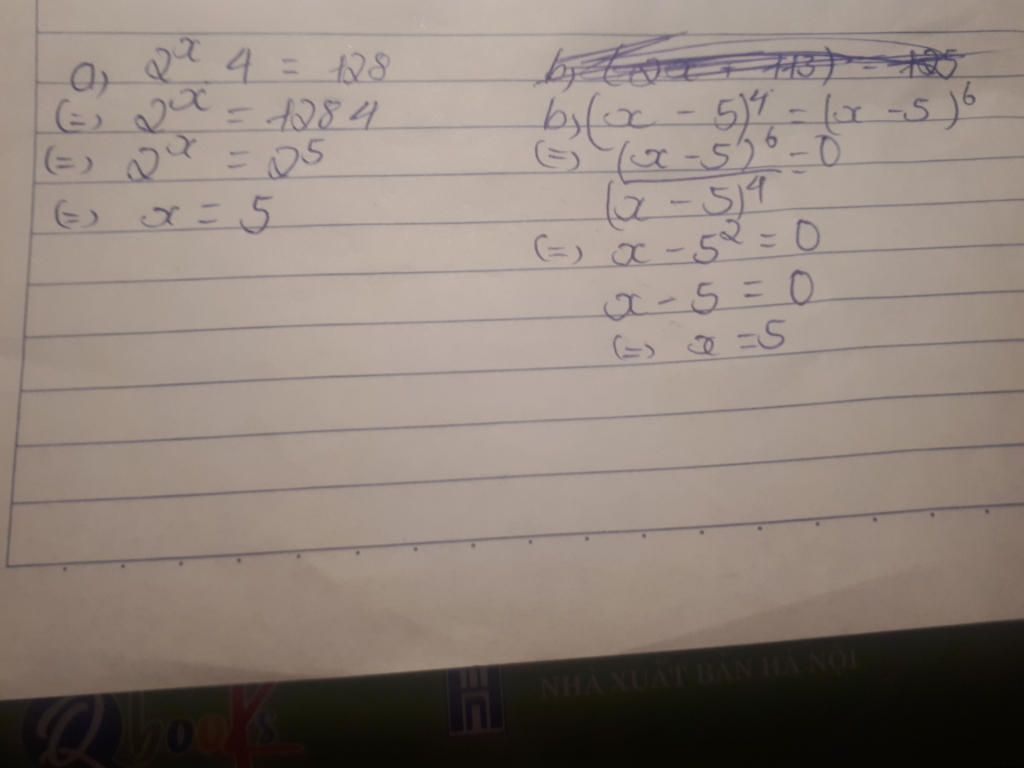 a, 2^x 4 = 128
(=) 2^x = 128 4
(=) 2^x = 2^5
(=) x = 5
b, (x - 5)^4 = (x - 5)^6
(=) (x - 5)^6 = 0
(x - 5)^4
(=) x - 5^2 = 0
x - 5 = 0
(=) x = 5
NHÀ XUẤT BẢN HÀ NỘI
Qbooks